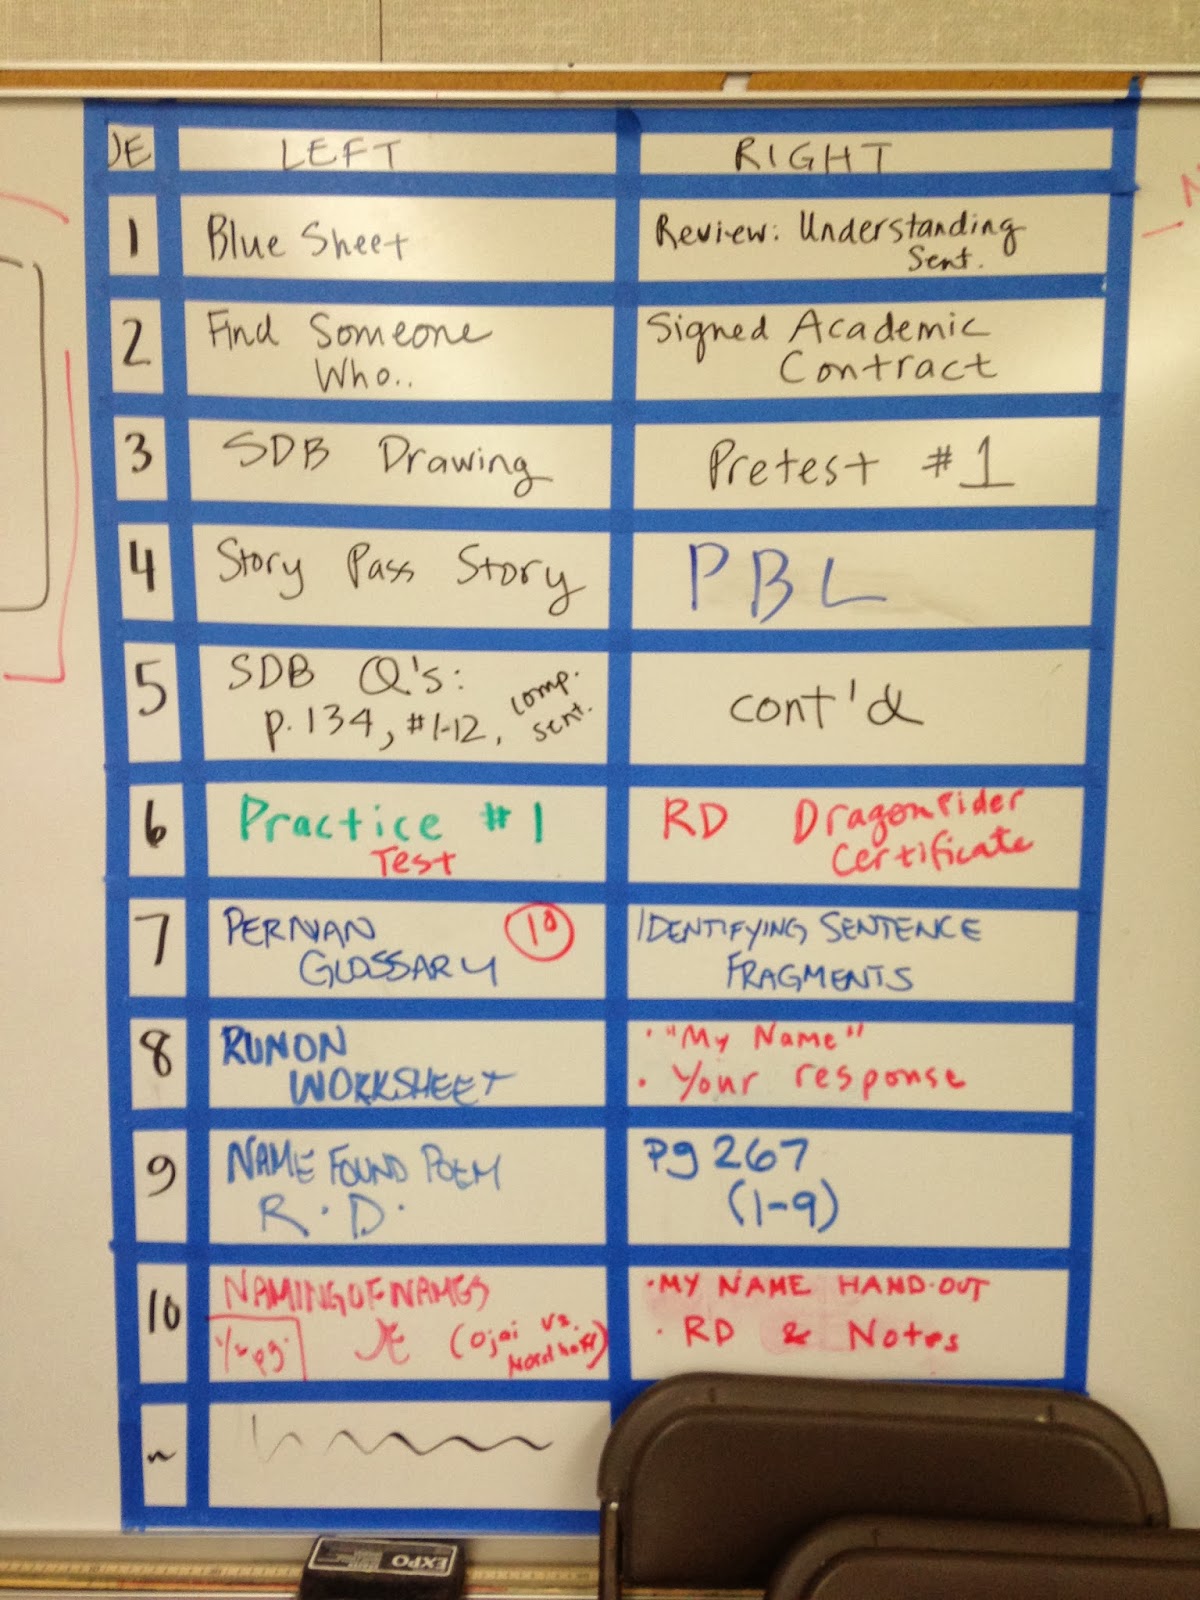 JE LEFT RIGHT
1 Blue Sheet Review: Understanding
Sent.
2 Find Someone Signed Academic
Who.. Contract
3 SDB Drawing Pretest #1
4 Story Pass Story PBL
5 SDB Q's: cont'd
p. 134, #1-12, comp.
sent.
6 Practice #1 RD Dragonrider
Test Certificate
7 PERNIAN 10 IDENTIFYING SENTENCE
GLOSSARY FRAGMENTS
8 RUNON • "My Name"
WORKSHEET • Your response
9 NAME FOUND POEM pg 267
R.D. (1-9)
10 NAMING OF NAMES • MY NAME HAND-OUT
1/2 pg. JE (Ojai vs. • RD & Notes
Nordhoff)
EXPO